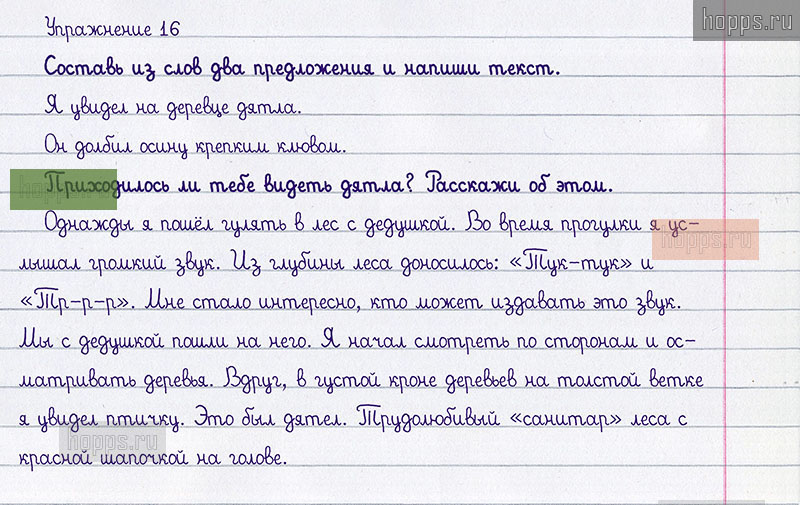 hopps.ru
Упражнение 16
Составь из слов два предложения и напиши текст.
Я увидел на деревце дятла.
Он долбил осину крепким клювом.
Приходилось ли тебе видеть дятла? Расскажи об этом.
Однажды я пошёл гулять в лес с дедушкой. Во время прогулки я ус-
лышал громкий звук. Из глубины леса доносилось: «Тук-тук» и
«Тр-р-р». Мне стало интересно, кто может издавать это звук.
Мы с дедушкой пошли на него. Я начал смотреть по сторонам и ос-
матривать деревья. Вдруг, в густой кроне деревьев на толстой ветке
я увидел птичку. Это был дятел. Трудолюбивый «санитар» леса с
красной шапочкой на голове.
hopps.ru
hopps.ru
hopps.ru